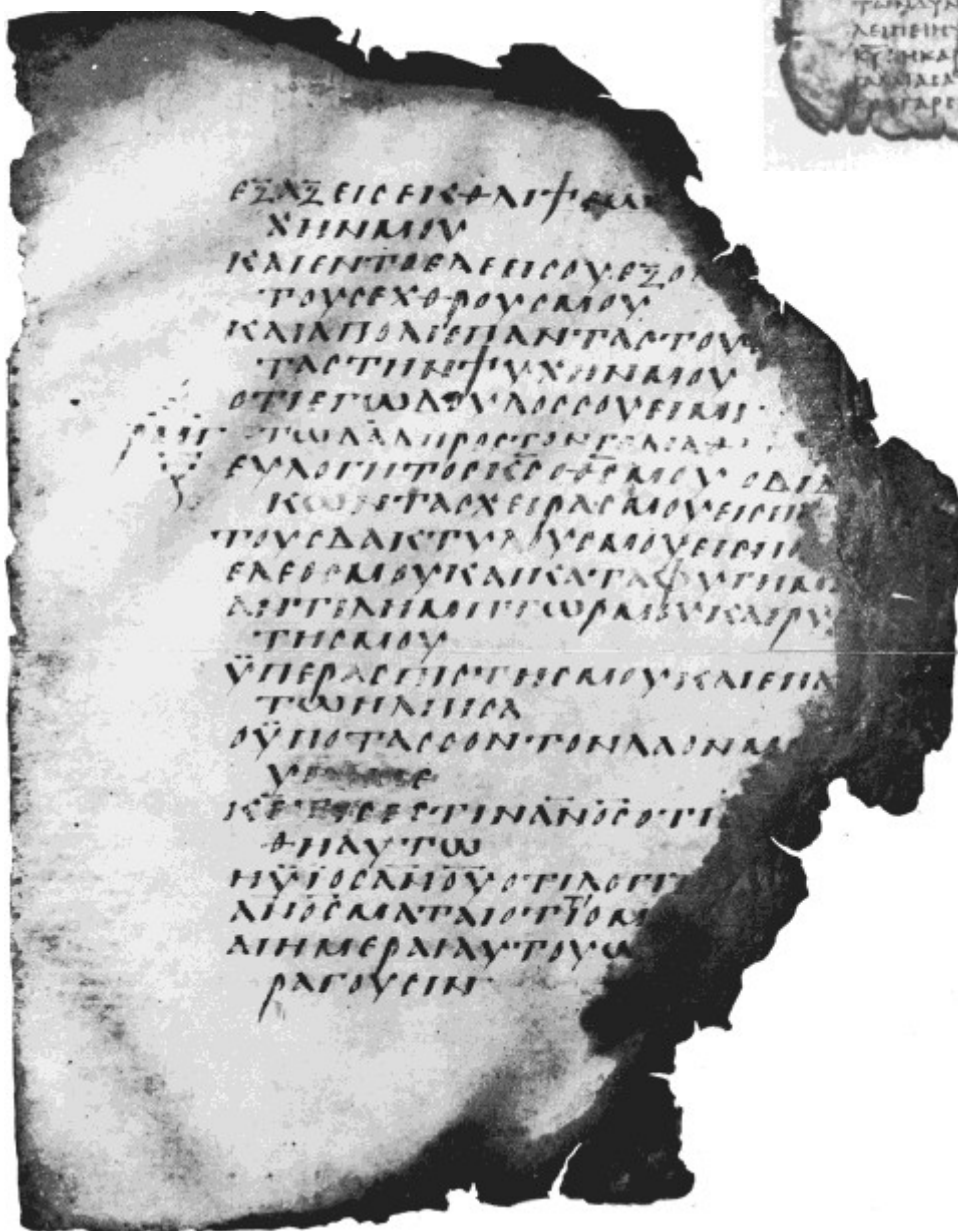 ΤΩΝΔΥΝ
ΛΕΙΠΕΙΗΥ
ΕΞΑΞΕΙϹΕΙΚΘΛΙΨΕ
ΧΗΝΜΟΥ
ΚΑΙΕΝΤΟΕΛΕΕΙϹΟΥΕΞΟ
ΤΟΥϹΕΧΘΡΟΥϹΜΟΥ
ΚΑΙΑΠΟΛΙϹΠΑΝΤΑϹΤΟΥ
ΤΑϹΤΗΝΨΥΧΗΝΜΟΥ
ΟΤΙΕΓΩΔΟΥΛΟϹϹΟΥΕΙΜΙ
ΡΜΓ ΤΩΔΑΔΠΡΟϹΤΟΝΓΟΛΙΑΘ
ΕΥΛΟΓΗΤΟϹΚ̅Ϲ̅ΟΘ̅Ϲ̅ΜΟΥΟΔΙΔΑ
ΚΩΝΤΑϹΧΕΙΡΑϹΜΟΥΕΙϹΠ
ΤΟΥϹΔΑΚΤΥΛΟΥϹΜΟΥΕΙϹΠΟ
ΕΛΕΟϹΜΟΥΚΑΙΚΑΤΑΦΥΓΗΜΟ
ΑΝΤΙΛΗΜΠΤΩΡΜΟΥΚΑΙΡΥ
ΤΗϹΜΟΥ
ΫΠΕΡΑϹΠΙϹΤΗϹΜΟΥΚΑΙΕΠΑ
ΤΩΗΛΠΙϹΑ
ΟΫΠΟΤΑϹϹΟΝΤΟΝΛΑΟΝΜ
Κ̅Ε̅ΤΙϹΕϹΤΙΝΑ̅Ν̅Ο̅Ϲ̅ΟΤΙ
ΘΗΑΥΤΩ
ΗΫΙΟϹΑ̅Ν̅Ο̅Υ̅ΟΤΙΛΟΓΙ
Α̅Ν̅Ο̅Ϲ̅ΜΑΤΑΙΟΤΙΟΜ
ΑΙΗΜΕΡΑΙΑΥΤΟΥΩ
ΡΑΓΟΥϹΙΝ